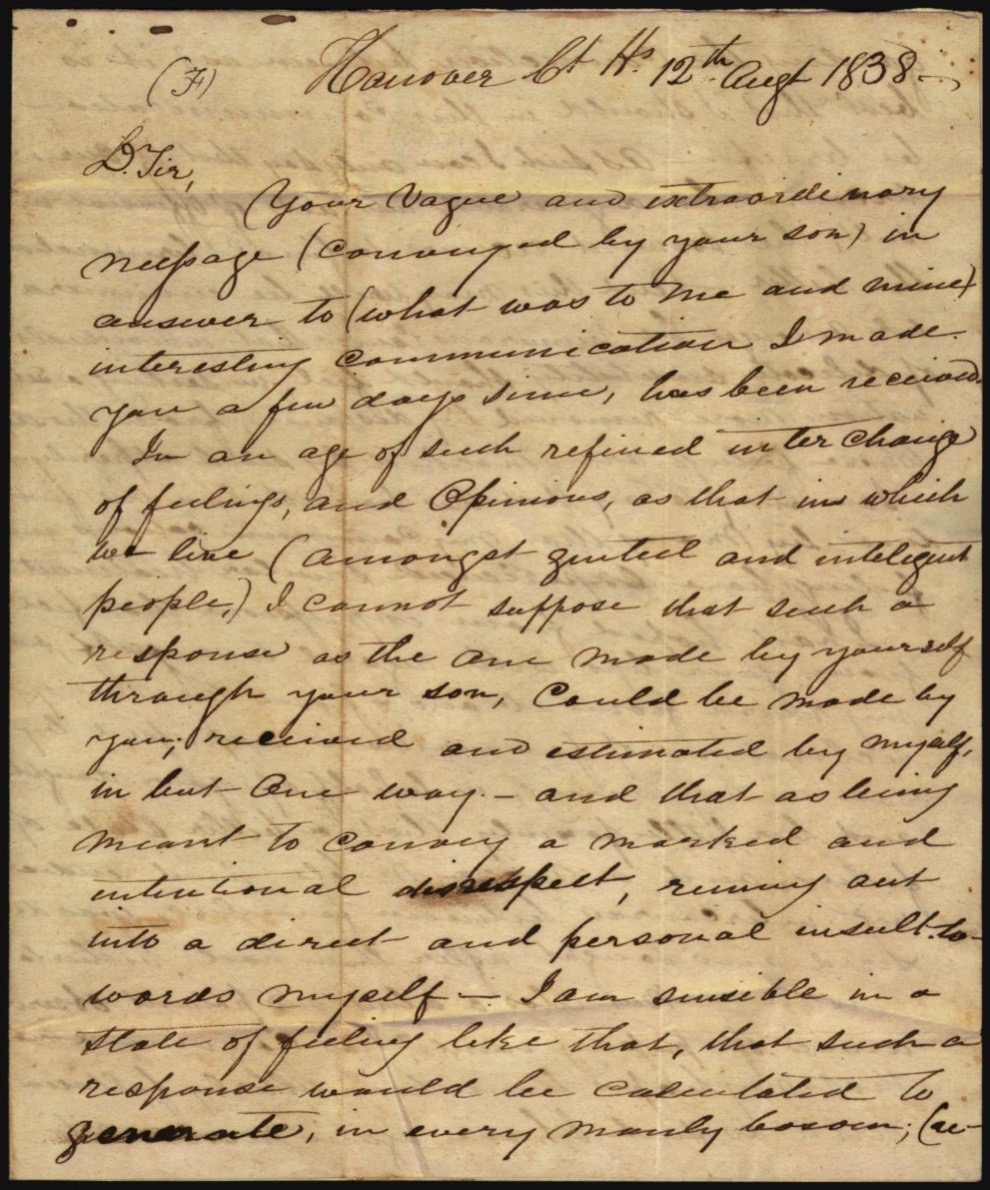 (F) Hanover Ct Hs. 12th Augt 1838—
D. Sir,
Your Vague and extraordinary
message (conveyed by your son) in
answer to (what was to me and mine)
interesting communication I made
you a few days since, has been received.
In an age of such refined interchange
of feelings, and Opinions, as that in which
we live (amongst genteel and inteligent
people,) I cannot suppose that such a
response as the one made by yourself
through your son, Could be made by
you; received and estimated by myself,
in but One way. – and that as being
meant to convey a marked and
intentional disrespect, runing out
into a direct and personal insult to-
words myself – I am sensible in a
state of feeling like that, that such a
response would be calculated to
generate, in every manly bosom, (ae-